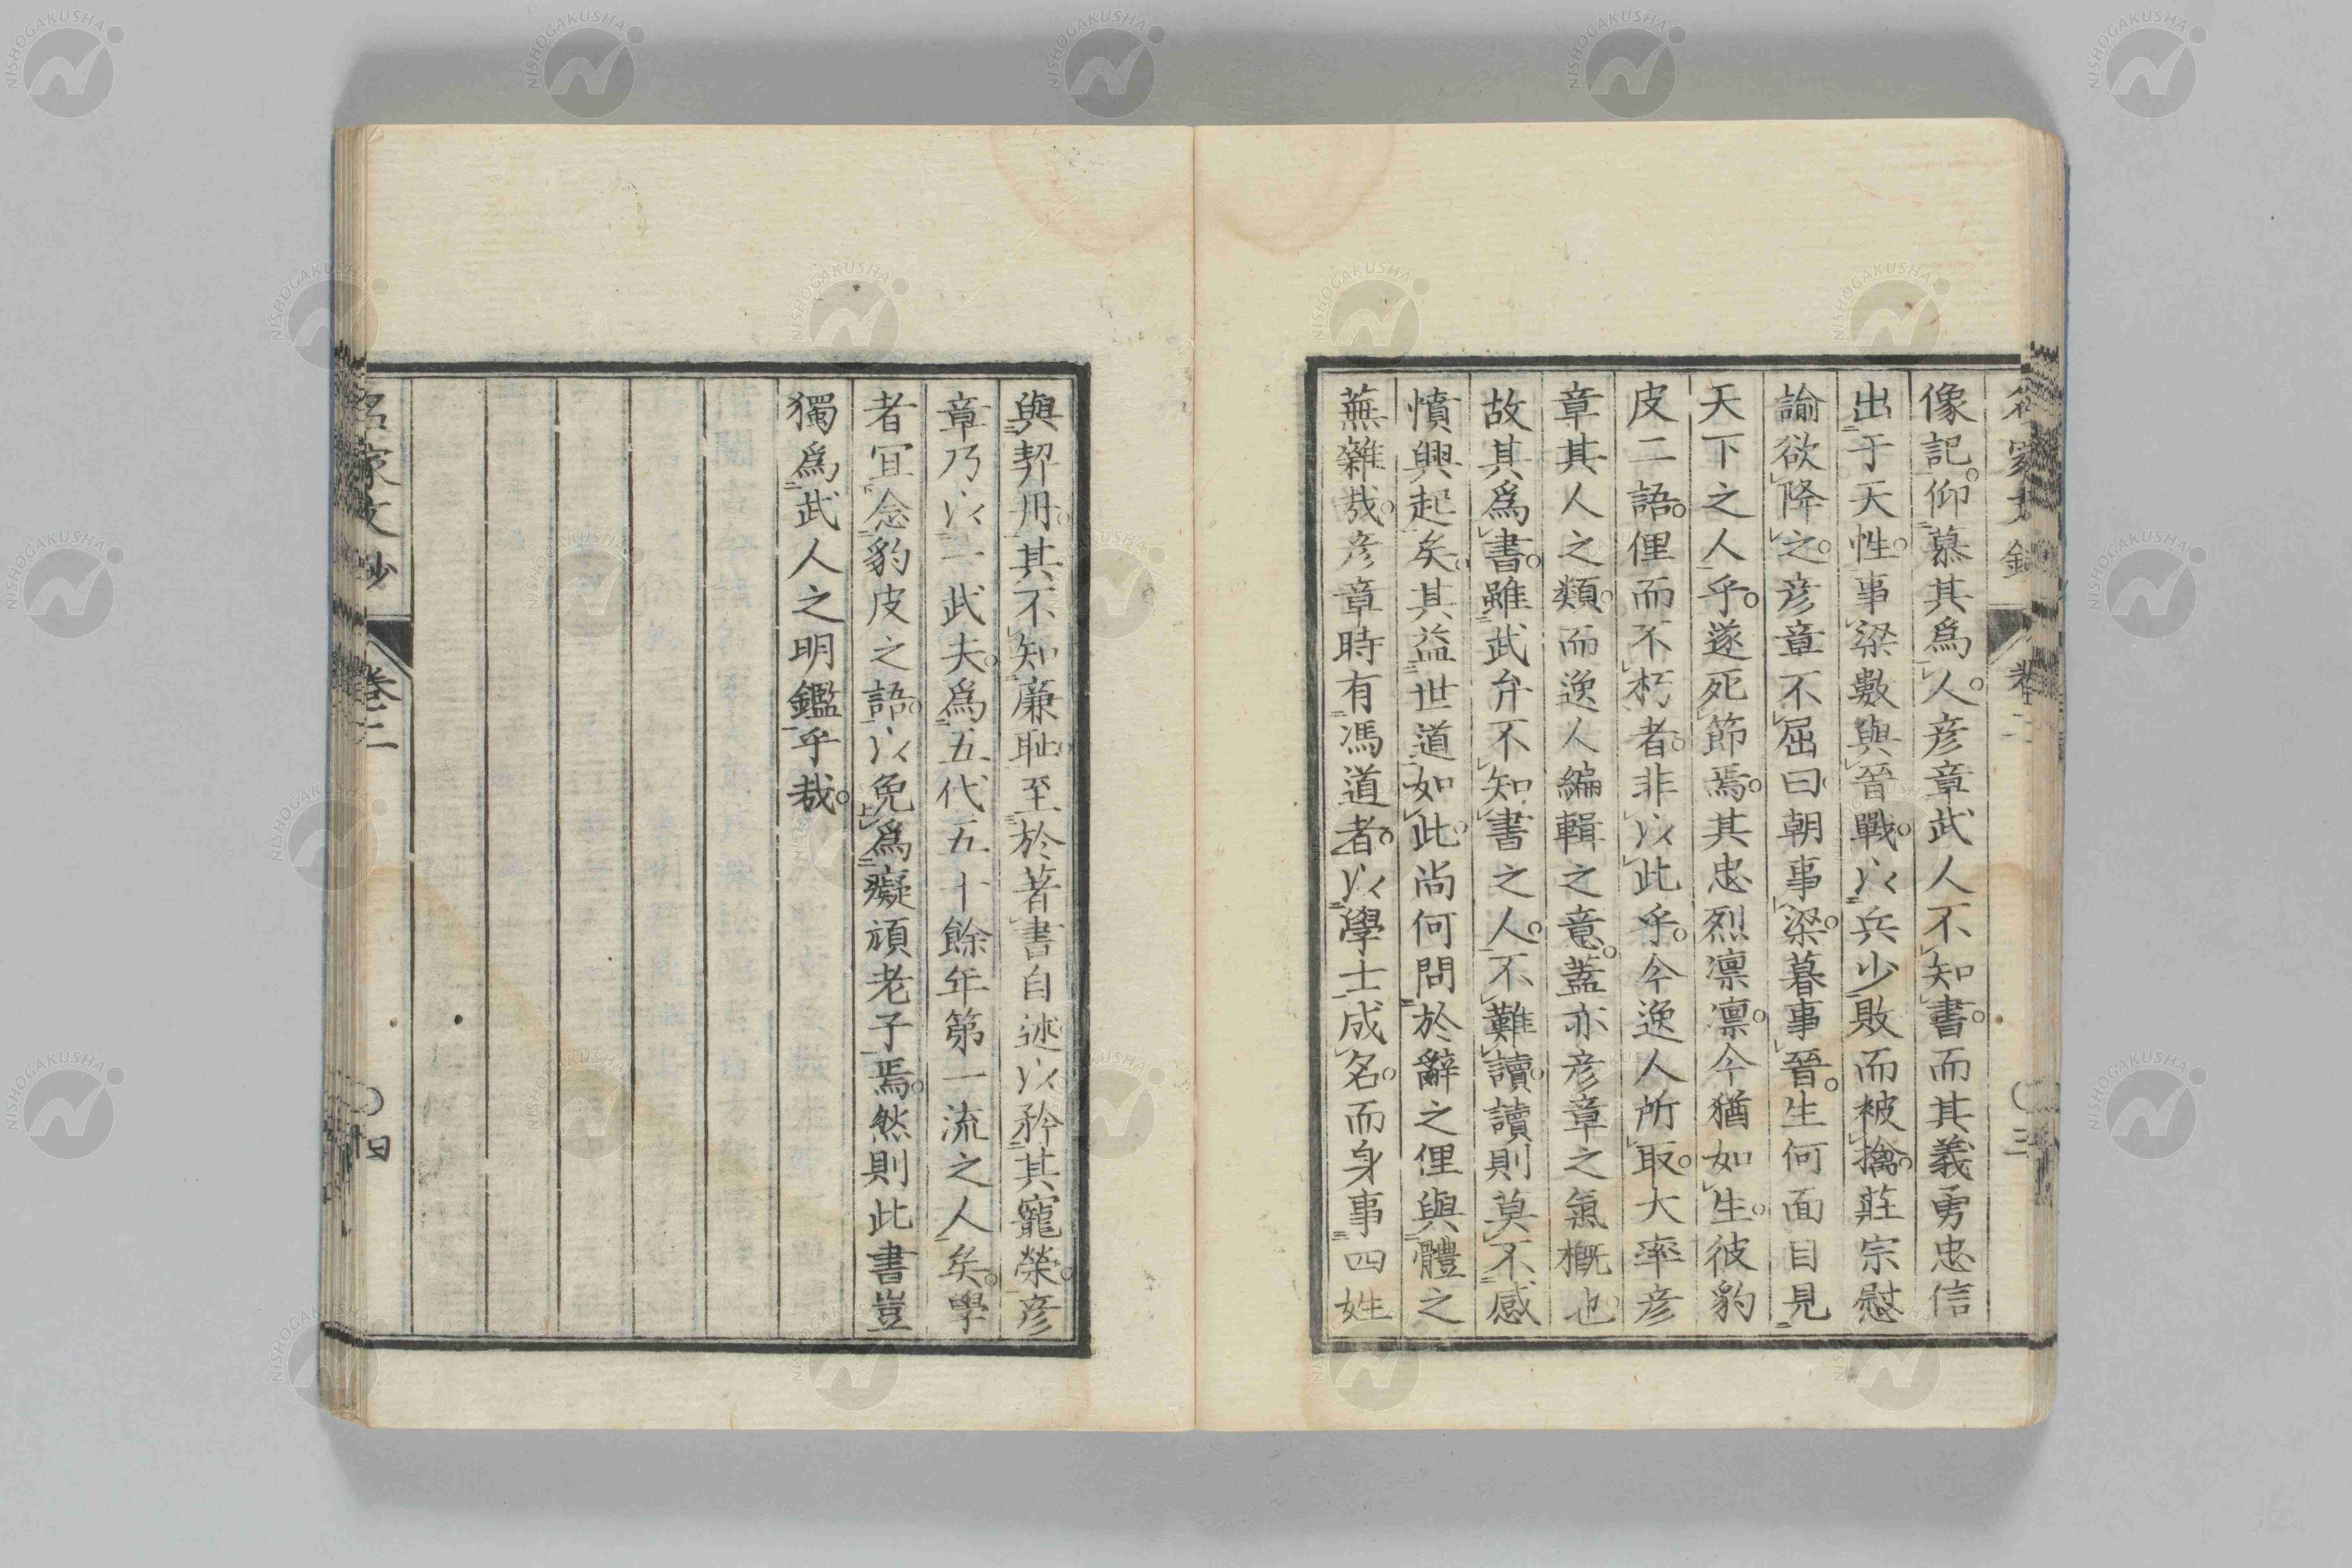 像記。仰慕其爲人。彦章武人不知書。而其義勇忠信
出于天性。事梁數與晉戰。以兵少敗而被擒。莊宗慰
諭欲降之。彦章不屈曰朝事梁。暮事晉。生何面目見
天下之人乎。遂死節焉。其忠烈凛凛。今猶如生。彼豹
皮二語。俚而不朽者。非以此乎。今逸人所取。大率彦
章其人之類。而逸人編輯之意。蓋亦彦章之氣概也。
故其爲書。雖武弁不知書之人。不難讀。讀則莫不感
憤興起矣。其益世道如此。尚何問於辭之俚與體之
蕪雜哉。彦章時有馮道者。以學士成名。而身事四姓
與契丹。其不知廉耻。至於著書自述。以矜其寵榮。彦
章乃以一武夫。爲五代五十餘年第一流之人矣。學
者冝念豹皮之語。以免爲癡頑老子焉。然則此書豈
獨爲武人之明鑑乎哉。
名家文鈔
卷三
NISHOGAKUSHA